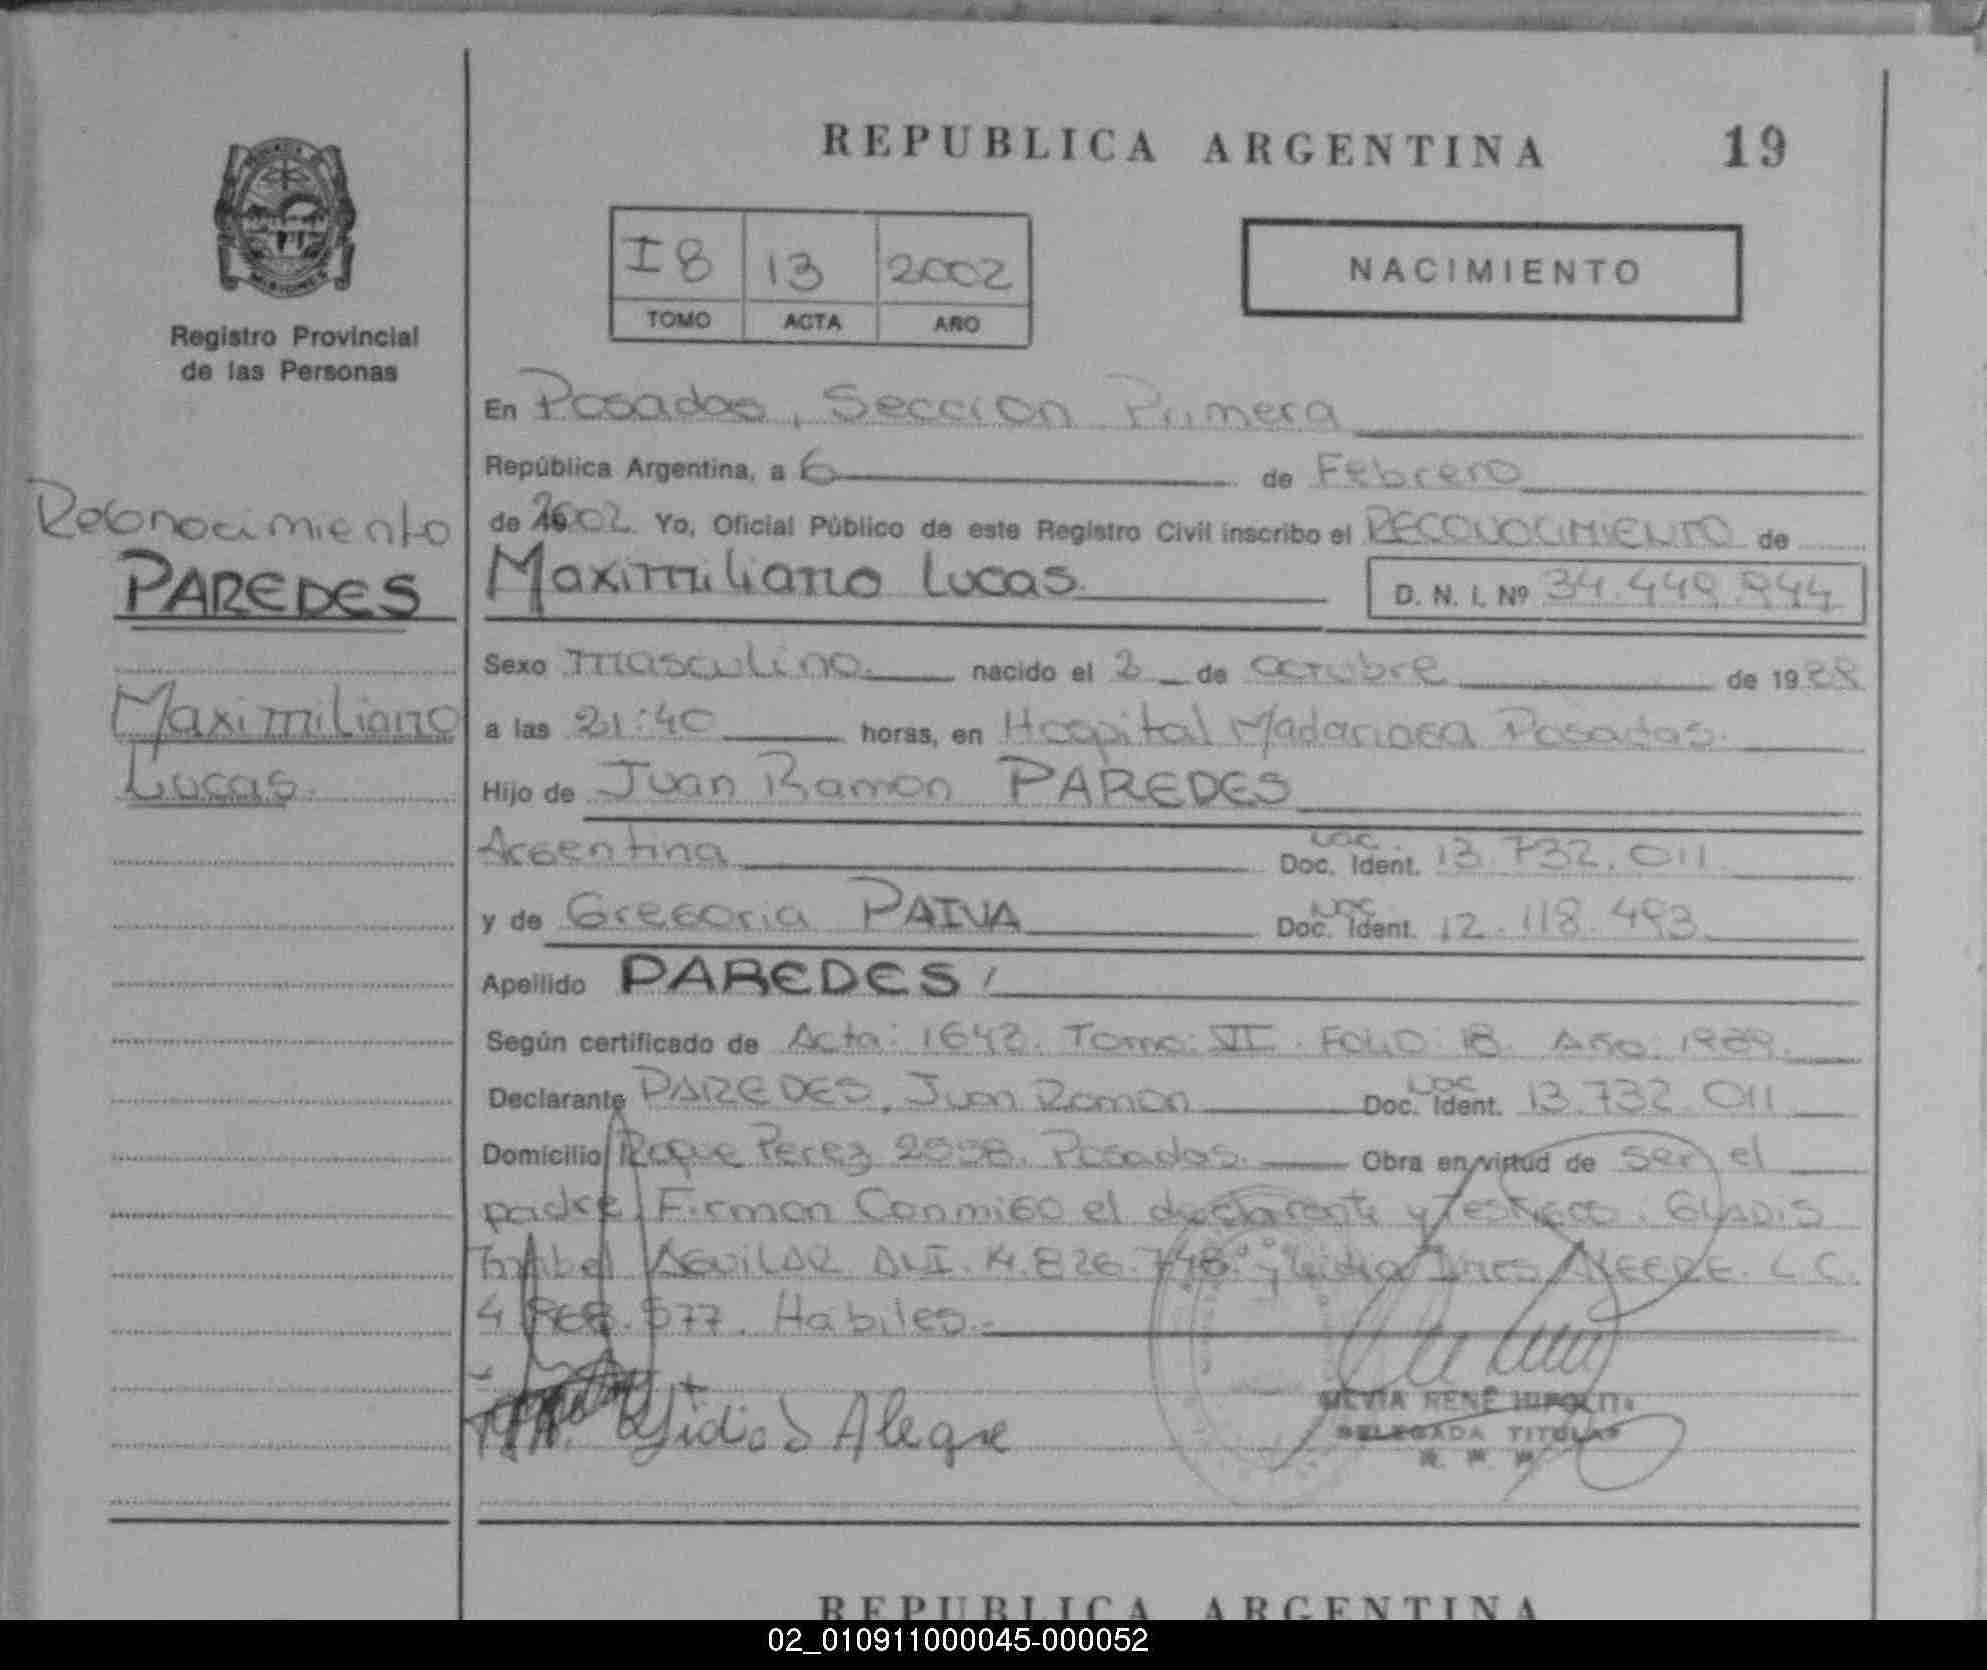 REPUBLICA ARGENTINA 19
I8 13 2002
TOMO ACTA AÑO
NACIMIENTO
Registro Provincial
de las Personas
Reconocimiento
PAREDES
Maximiliano
Lucas
En Posadas, Seccion Primera
República Argentina, a 6 de Febrero
de 2002 Yo, Oficial Público de este Registro Civil inscribo el RECONOCIMIENTO de
Maximiliano Lucas. D. N. I. Nº 34.449.944
Sexo masculino nacido el 2 de octubre de 1988
a las 21:40 horas, en Hospital Madariaga Posadas.
Hijo de Juan Ramon PAREDES
Argentina Doc. Ident. 13.732.011
y de Gregoria PAIVA Doc. Ident. 12.118.493
Apellido PAREDES
Según certificado de Acta: 1642. Tomo: VI. FOLIO: 18. Año: 1989.
Declarante PAREDES, Juan Ramon Doc. Ident. 13.732.011
Domicilio Roque Perez Posadas. Obra en virtud de ser el
padre. Firman Conmigo el declarante y testigos: GLADIS
AGUILAR DNI. 4.826.748 y Lidia Ines ALEGRE. L.C.
4 577. Habiles.-
Lidia I Alegre
SILVIA RENÉ HIPOLITO
DELEGADA TITULAR
REPUBLICA ARGENTINA
02_010911000045-000052